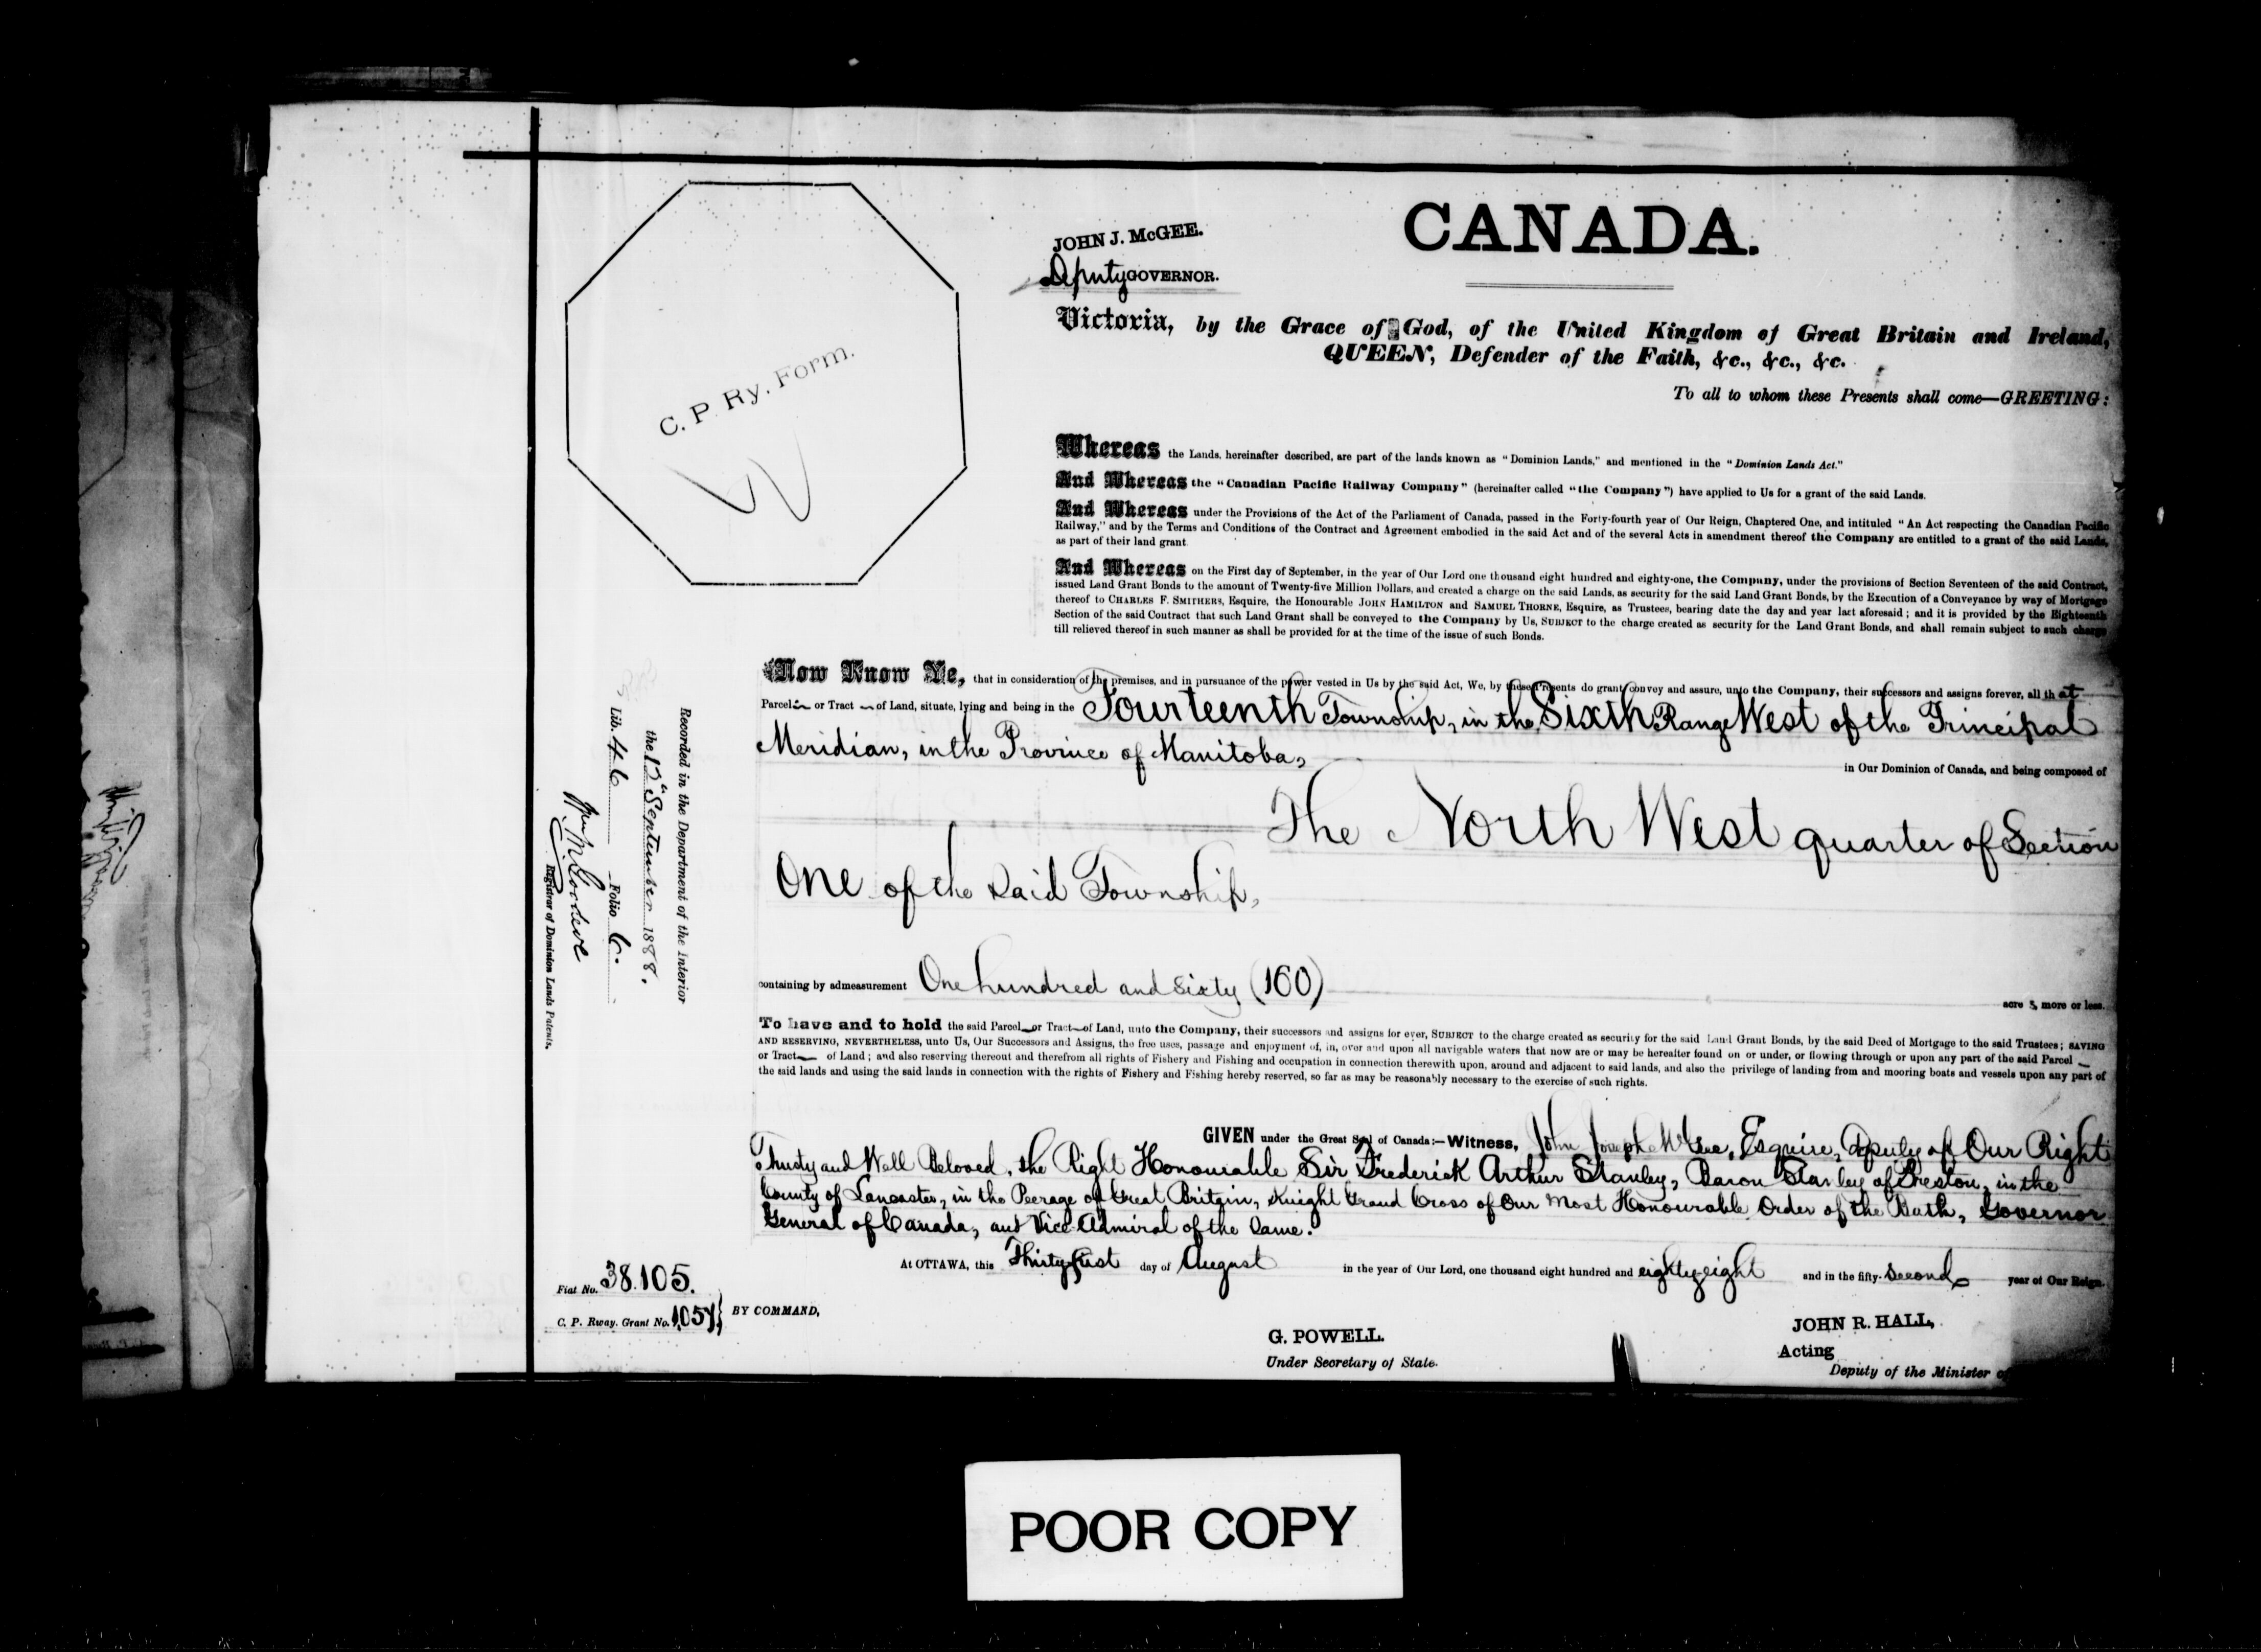 CANADA.
JOHN J. McGEE.
Deputy GOVERNOR.
C. P. Ry. Form.
Victoria, by the Grace of God, of the United Kingdom of Great Britain and Ireland,
QUEEN, Defender of the Faith, &c., &c., &c.
To all to whom these Presents shall come—GREETING:
Whereas the Lands, hereinafter described, are part of the lands known as "Dominion Lands," and mentioned in the "Dominion Lands Act."
And Whereas the "Canadian Pacific Railway Company" (hereinafter called "the Company") have applied to Us for a grant of the said Lands.
And Whereas under the Provisions of the Act of the Parliament of Canada, passed in the Forty-fourth year of Our Reign, Chaptered One, and intituled "An Act respecting the Canadian Pacific
Railway," and by the Terms and Conditions of the Contract and Agreement embodied in the said Act and of the several Acts in amendment thereof the Company are entitled to a grant of the said Lands,
as part of their land grant.
And Whereas on the First day of September, in the year of Our Lord one thousand eight hundred and eighty-one, the Company, under the provisions of Section Seventeen of the said Contract,
issued Land Grant Bonds to the amount of Twenty-five Million Dollars, and created a charge on the said Lands, as security for the said Land Grant Bonds, by the Execution of a Conveyance by way of Mortgage
thereof to CHARLES F. SMITHERS, Esquire, the Honourable JOHN HAMILTON and SAMUEL THORNE, Esquire, as Trustees, bearing date the day and year last aforesaid; and it is provided by the Eighteenth
Section of the said Contract that such Land Grant shall be conveyed to the Company by Us, SUBJECT to the charge created as security for the Land Grant Bonds, and shall remain subject to such charge
till relieved thereof in such manner as shall be provided for at the time of the issue of such Bonds.
Now Know Ye, that in consideration of the premises, and in pursuance of the power vested in Us by the said Act, We, by these Presents do grant, convey and assure, unto the Company, their successors and assigns forever, all that
Parcel or Tract of Land, situate, lying and being in the Fourteenth Township, in the Sixth Range West of the Principal
Meridian, in the Province of Manitoba,
in Our Dominion of Canada, and being composed of
The North West quarter of Section
One of the said Township,
containing by admeasurement One hundred and sixty (160)
acre s, more or less.
To have and to hold the said Parcel or Tract of Land, unto the Company, their successors and assigns for ever, SUBJECT to the charge created as security for the said Land Grant Bonds, by the said Deed of Mortgage to the said Trustees; SAVING
AND RESERVING, NEVERTHELESS, unto Us, Our Successors and Assigns, the free uses, passage and enjoyment of, in, over and upon all navigable waters that now are or may be hereafter found on or under, or flowing through or upon any part of the said Parcel
or Tract of Land; and also reserving thereout and therefrom all rights of Fishery and Fishing and occupation in connection therewith upon, around and adjacent to said lands, and also the privilege of landing from and mooring boats and vessels upon any part of
the said lands and using the said lands in connection with the rights of Fishery and Fishing hereby reserved, so far as may be reasonably necessary to the exercise of such rights.
GIVEN under the Great Seal of Canada:—Witness, John Joseph McGee, Esquire, Deputy of Our Right
Trusty and Well Beloved, the Right Honourable Sir Frederick Arthur Stanley, Baron Stanley of Preston, in the
County of Lancaster, in the Peerage of Great Britain, Knight Grand Cross of Our Most Honourable Order of the Bath, Governor
General of Canada, and Vice Admiral of the same.
At OTTAWA, this Thirty first day of August in the year of Our Lord, one thousand eight hundred and eighty-eight and in the fifty-second year of Our Reign.
Fiat No. 38.105.
C. P. Rway. Grant No. 1057
BY COMMAND,
G. POWELL.
Under Secretary of State.
JOHN R. HALL,
Acting
Deputy of the Minister of
Recorded in the Department of the Interior
the 12" September 1888.
Lib. 46 Folio 6.
Registrar of Dominion Lands Patents.
POOR COPY